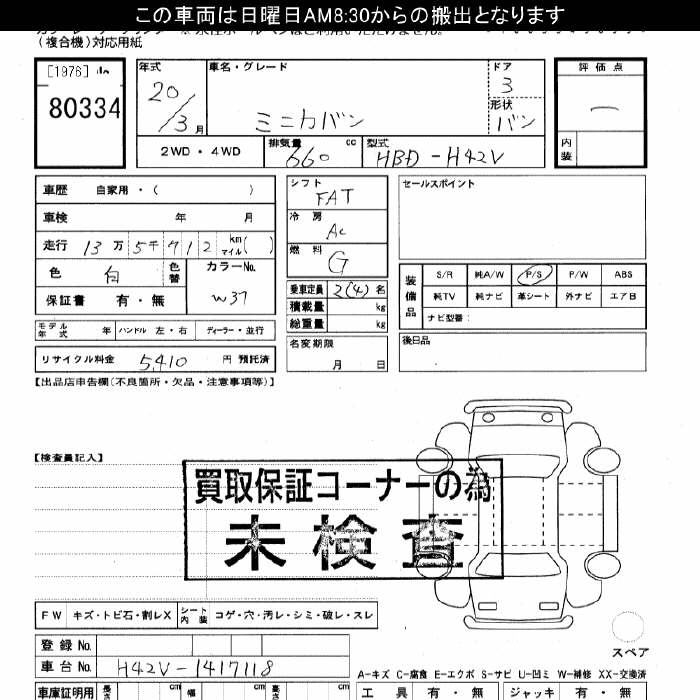 この車両は日曜日AM8:30からの搬出となります
(複合機)対応用紙
[1976]
80334
年式
20/3月
車名・グレード
ミニカバン
ドア
3
形状
バン
評価点
内装
2WD・4WD
排気量
660 cc
型式
HBD-H42V
車歴 自家用・( )
車検 年 月
走行 13万5千912 km マイル( )
色 白 色替
カラーNo.
W37
保証書 有・無
シフト
FAT
冷房
AC
燃料
G
乗車定員 2(4)名
積載量 kg
総重量 kg
モデル年式 年 ハンドル 左・右 ディーラー・並行
リサイクル料金 5,410 円 預託済
名変期限
月 日
セールスポイント
装備品
S/R 純A/W P/S P/W ABS
純TV 純ナビ 革シート 外ナビ エアB
ナビ型番:
後日品
【出品店申告欄(不良箇所・欠品・注意事項等)】
【検査員記入】
買取保証コーナーの為
未検査
FW キズ・トビ石・割レX シート内装 コゲ・穴・汚レ・シミ・破レ・スレ
スペア
登録No.
車台No. H42V-1417118
A-キズ C-腐食 E-エクボ S-サビ U-凹ミ W-補修 XX-交換済
車庫証明用 長さ cm 幅 cm 高さ cm
工具 有・無 ジャッキ 有・無